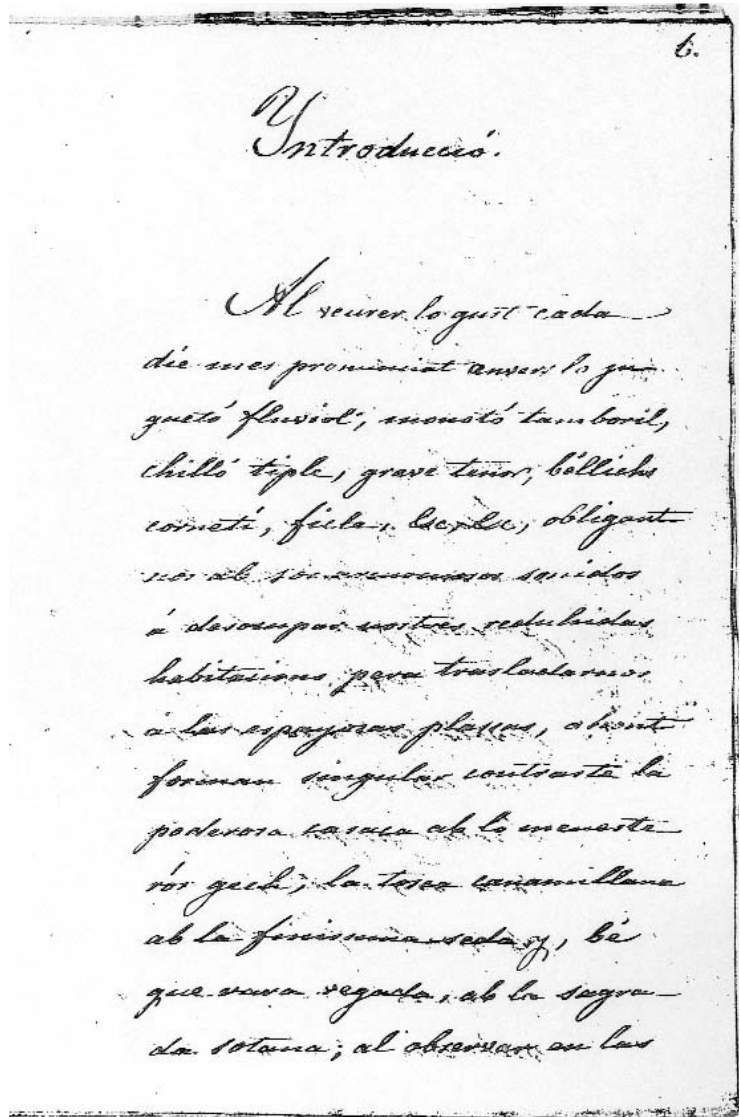 6.
Yntroducció.
Al veurer lo gust cada
die mes pronunciat envers lo ju-
guetó fluviol, monotó tamboril,
chilló tiple, grave tenor, béllichs
cornetí, fiscle, &c, &c, obligant
nos ab sos sonidos
á desocupar nostres reduhidas
habitacions pera trasladarnos
á las espayosas plassas, ahont
forman singular contraste la
poderosa casaca ab lo meneste
rós gech, la tosca canamillana
ab la finissima seda y, bé
que rara vegada, ab la sagra-
da sotana; al observar en las